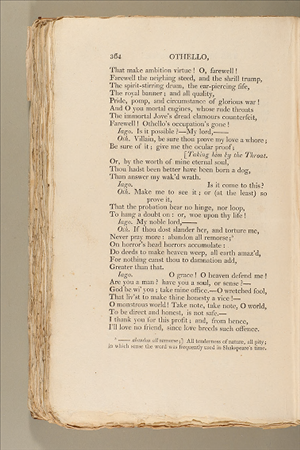 364 OTHELLO,
That make ambition virtue! O, farewell!
Farewell the neighing steed, and the shrill trump,
The spirit-stirring drum, the ear-piercing fife,
The royal banner; and all quality,
Pride, pomp, and circumstance of glorious war!
And O you mortal engines, whose rude throats
The immortal Jove's dread clamours counterfeit,
Farewell! Othello's occupation's gone!
Iago. Is it possible?—My lord,——
Oth. Villain, be sure thou prove my love a whore;
Be sure of it; give me the ocular proof;
[Taking him by the Throat.
Or, by the worth of mine eternal soul,
Thou hadst been better have been born a dog,
Than answer my wak'd wrath.
Iago. Is it come to this?
Oth. Make me to see it; or (at the least) so
prove it,
That the probation bear no hinge, nor loop,
To hang a doubt on: or, woe upon thy life!
Iago. My noble lord,——
Oth. If thou dost slander her, and torture me,
Never pray more: abandon all remorse;
On horror's head horrors accumulate:
Do deeds to make heaven weep, all earth amaz'd,
For nothing canst thou to damnation add,
Greater than that.
Iago. O grace! O heaven defend me!
Are you a man? have you a soul, or sense?—
God be wi' you; take mine office.—O wretched fool,
That liv'st to make thine honesty a vice!—
O monstrous world! Take note, take note, O world,
To be direct and honest, is not safe.—
I thank you for this profit; and, from hence,
I'll love no friend, since love breeds such offence.
—— abandon all remorse;] All tenderness of nature, all pity;
in which sense the word was frequently used in Shakspeare's time.